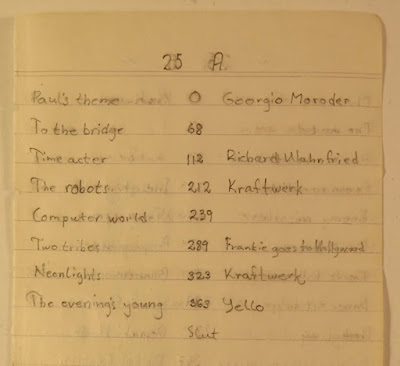 25 A
Paul's theme 0 Georgio Moroder
To the bridge 68
Time acter 112 Richard Wahnfried
The robots 212 Kraftwerk
Computer world 239
Two tribes 289 Frankie goes to Hollywood
Neonlights 323 Kraftwerk
The evening's young 363 Yello
Slut